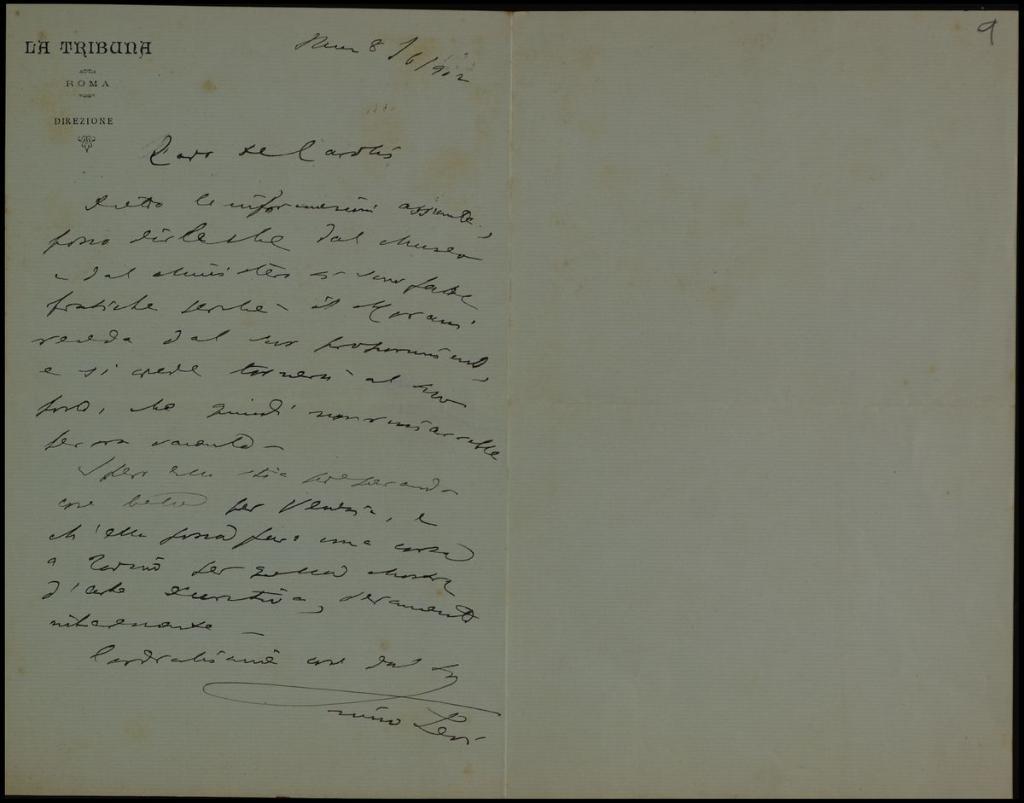 9
LA TRIBUNA
ROMA
DIREZIONE
Roma 8/6/902
Caro De Carolis
Dietro le informazioni assunte,
posso dirle che dal Museo
e dal Ministero si son fatte
pratiche perché il Morani
receda dal suo proponimento,
e si crede tornerà al suo
posto, che quindi non rimarrebbe
per ora vacante –
Spero ella stia preparando
cose belle per Venezia, e
ch'ella possa fare una corsa
a Torino per quella mostra
d'arte decorativa, veramente
interessante –
Cordialissime cose dal suo
Primo Levi